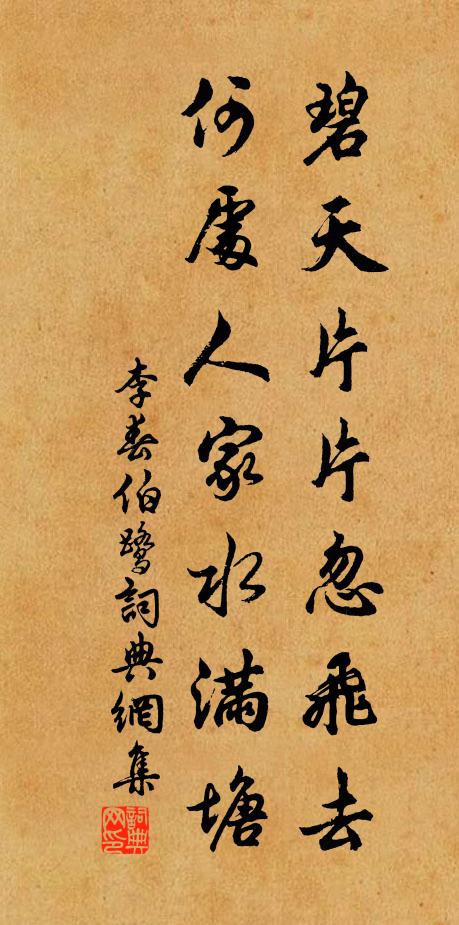 碧天片片忽飛去
何處人家水滿塘
李春伯鷺詞典網集
詞典网印